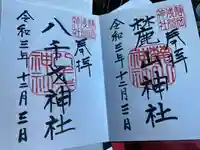 奉拝
麓山神社
令和三年十二月三日
奉拝
八千戈神社
令和三年十二月三日